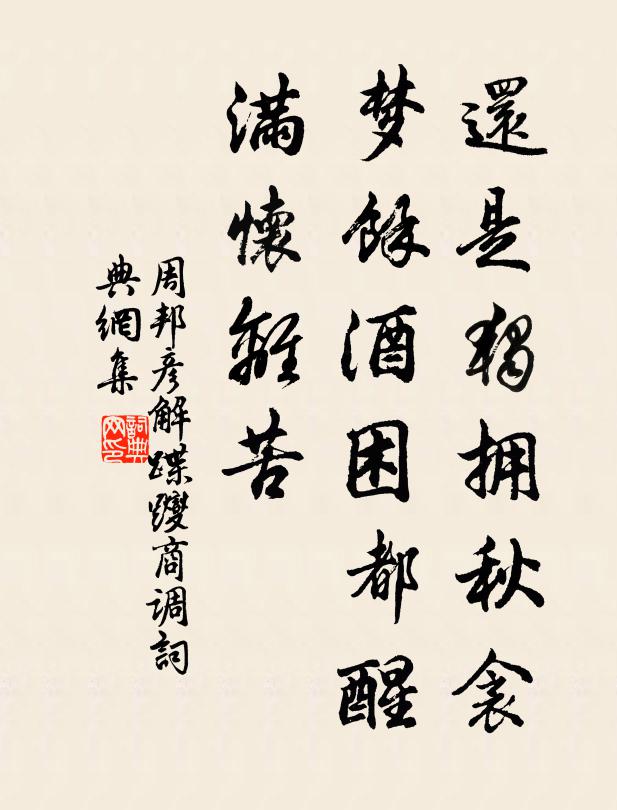 還是獨拥秋衾
梦餘酒困都醒
满懷離苦
周邦彦解蹀躞商调詞
典網集
詞典网印